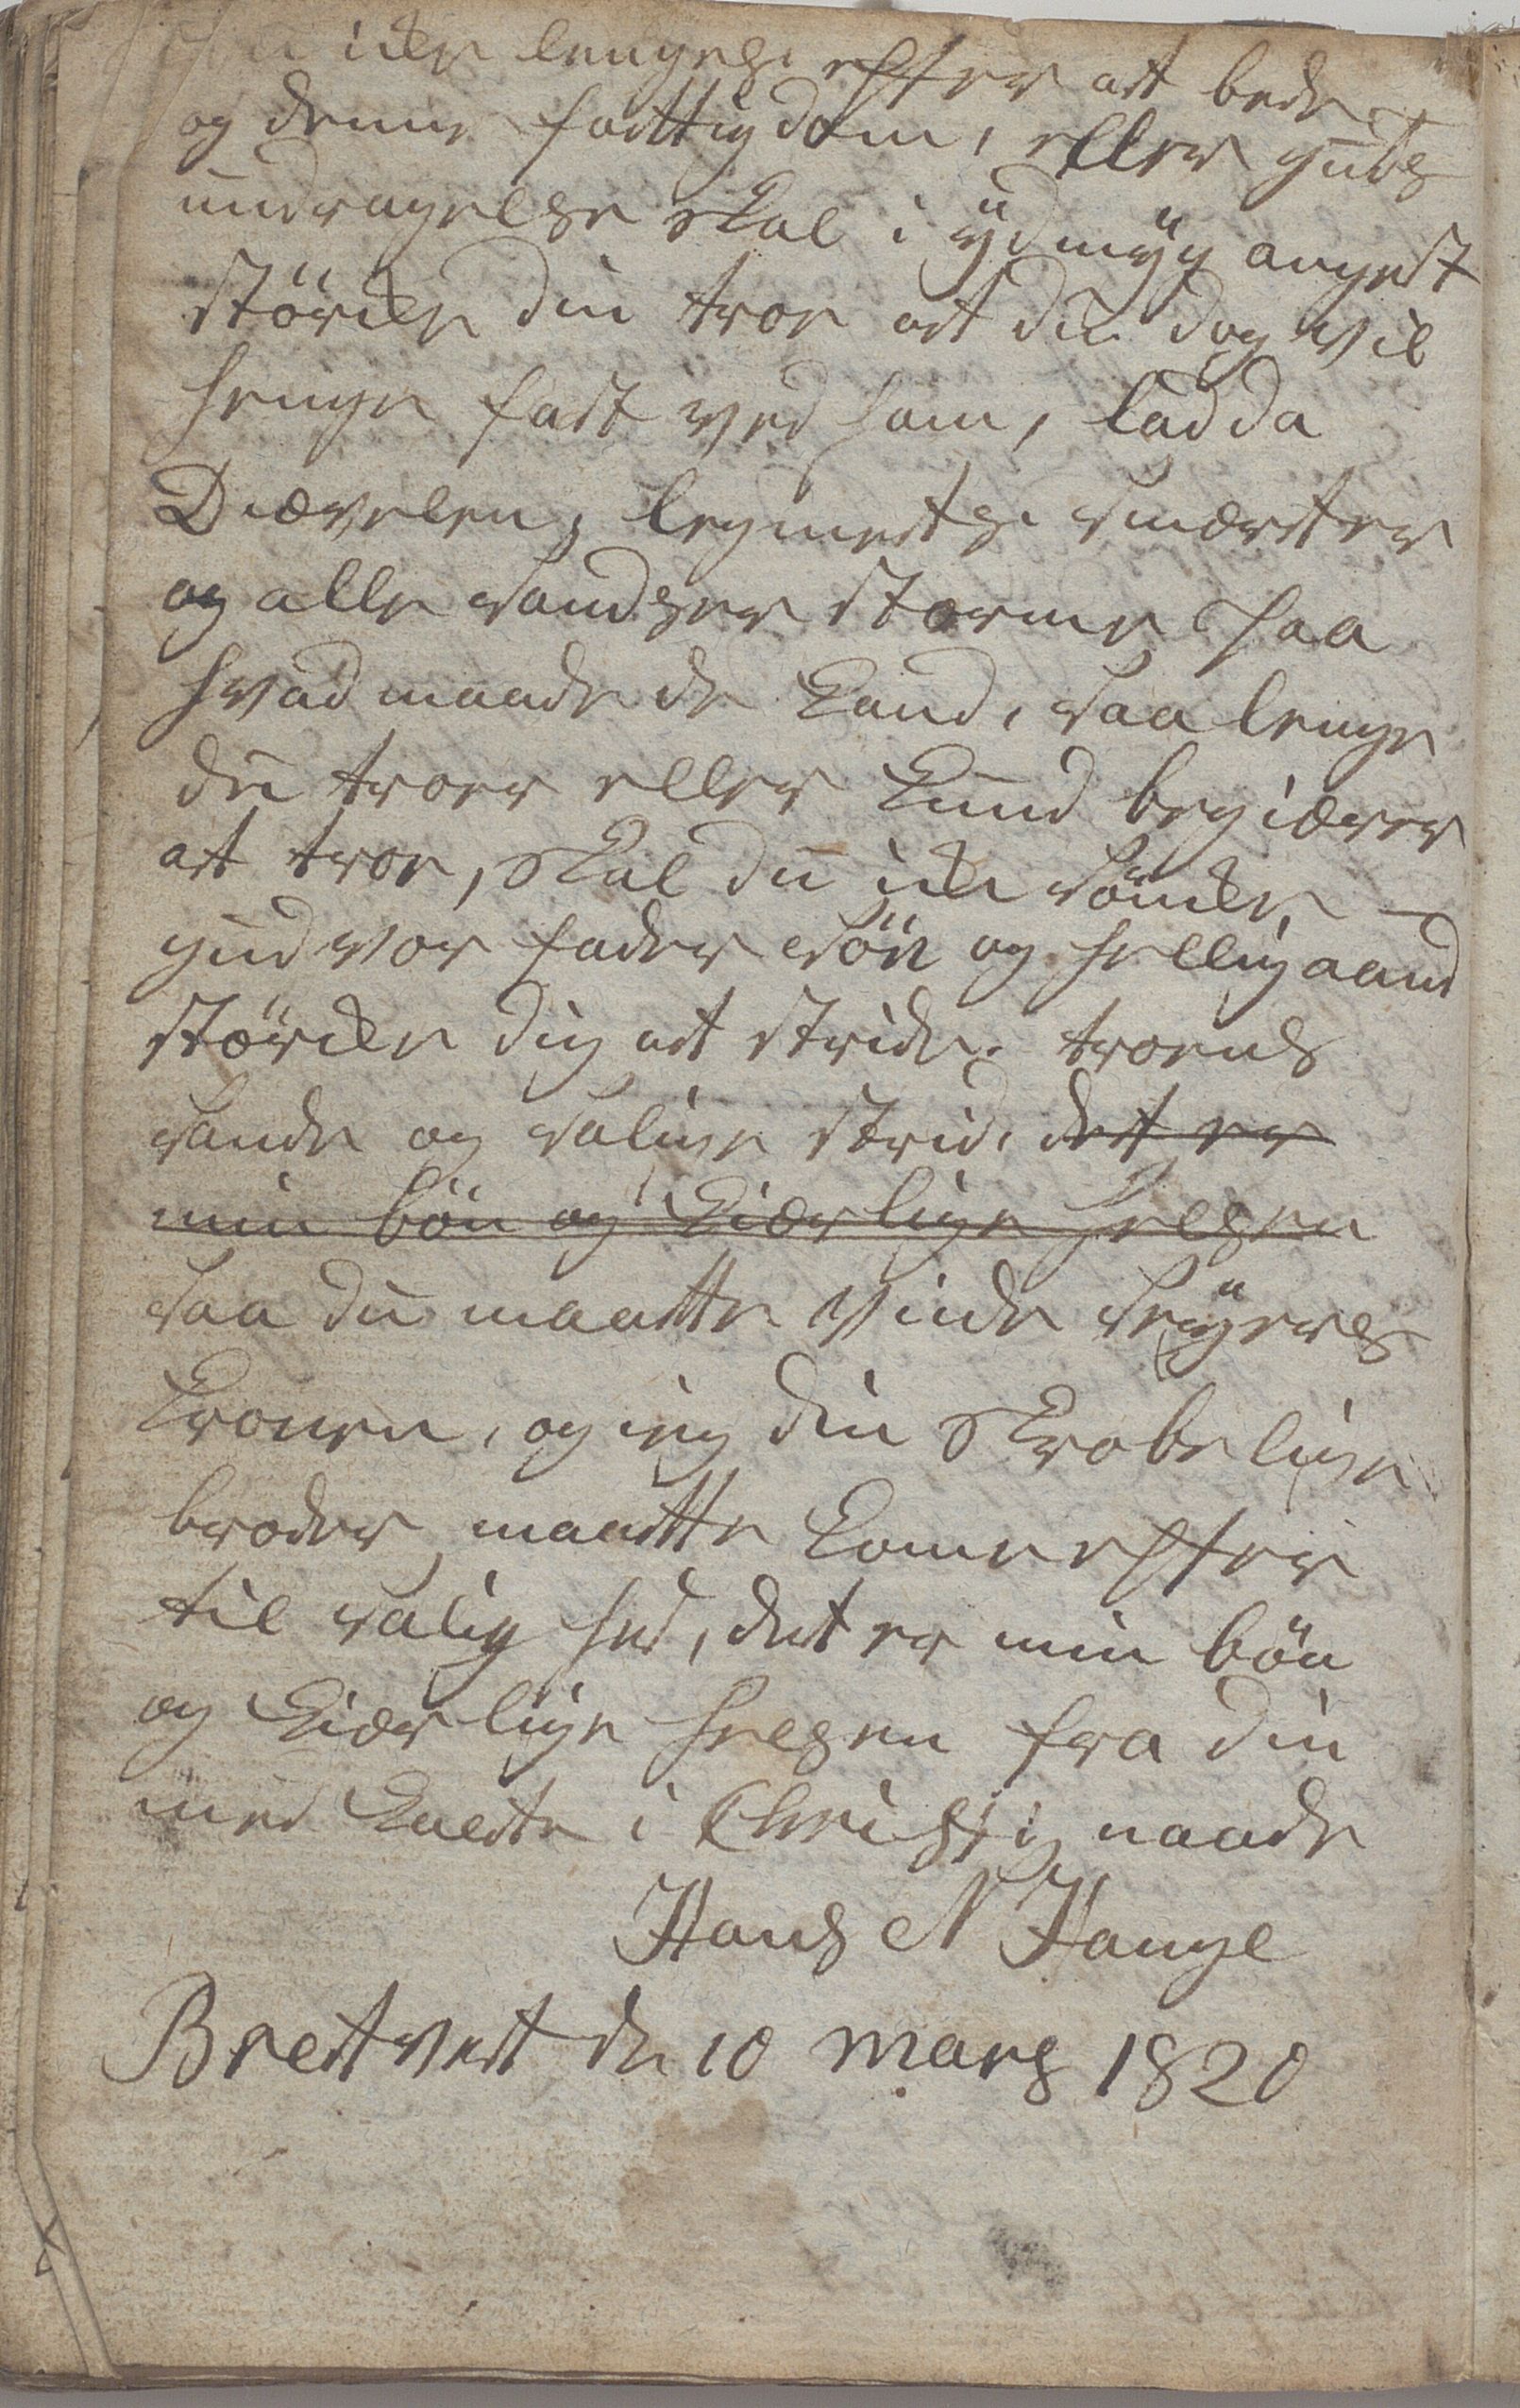 icke lenges efter at bede
og denne fattigdom, eller guds
undragelse skal i ÿdmÿg angest
störcke din troe at du dog vil
henge fast ved ham, lad da
Diævelen, legmets smærter
og alle sandser storme paa
hvad maade de kand, saa lenge
du troer eller kund begiærer
at troe, skal du icke søncke —
gud vor fader sön og hellig aand
störcke dig at stride troens
sande og salige strid, det er
min bön og kiærlige helsen
saa du maatte vinde seÿers
kronen, og ieg din skrøbelige
broder maatte kome efter
til salig hed, det er min bön
og kiærlige helsen fra din
med knecte i Christj naade
Hans N Hauge
Bretvet de 10 mars 1820